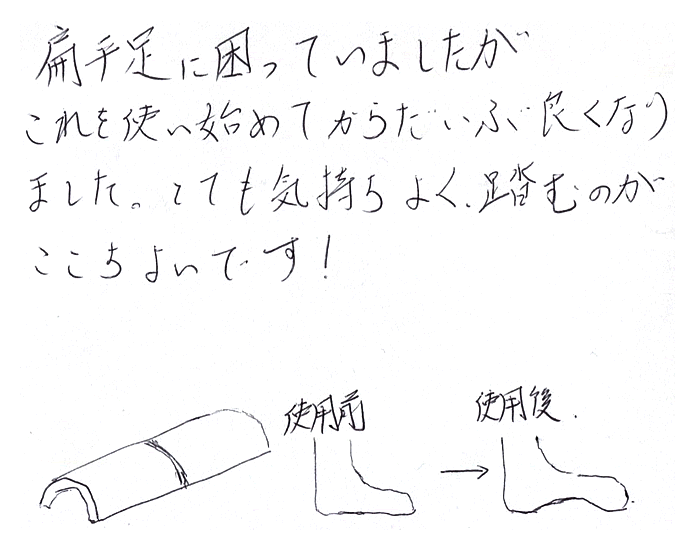 扁平足に困っていましたが
これを使い始めてからだいぶ良くなり
ました。とても気持ちよく、踏むのが
ここちよいです!
使用前
使用後.